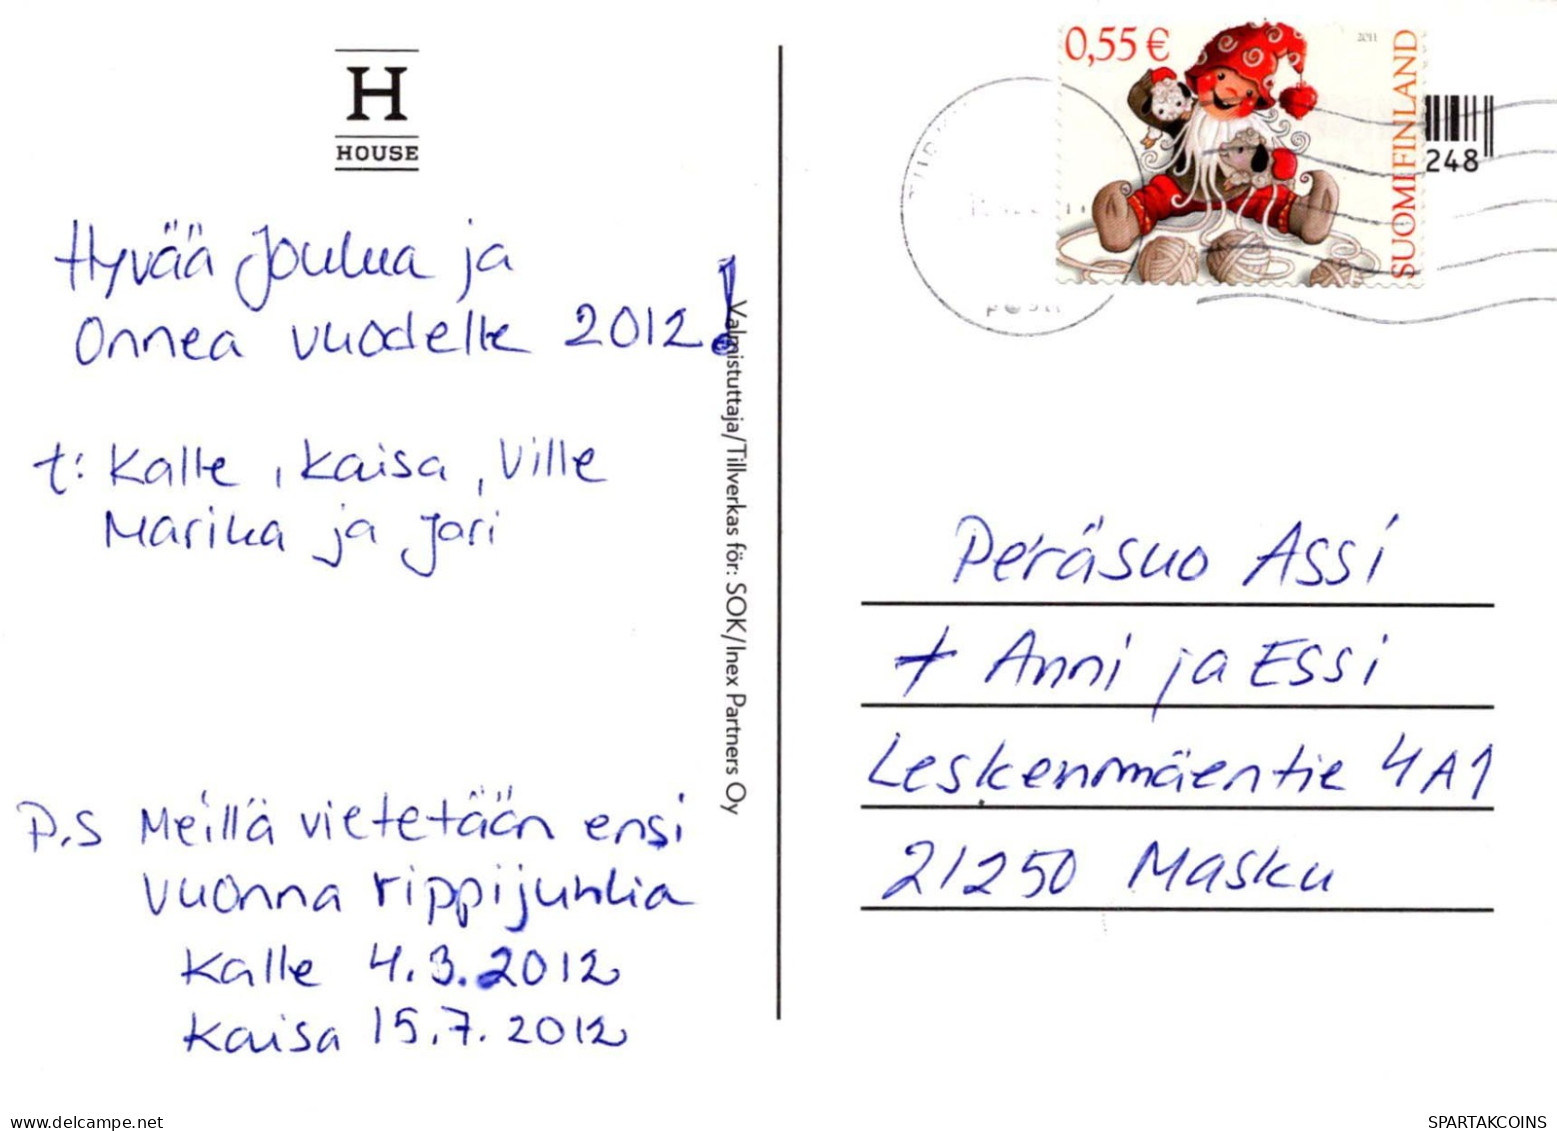 H
HOUSE
Hyvää Joulua ja
Onnea vuodelle 2012!
t: Kalle, Kaisa, Ville
Marika ja Jari
P.S Meillä vietetään ensi
vuonna rippijuhlia
Kalle 4.3.2012
Kaisa 15.7.2012
Valmistuttaja/Tillverkas för: SOK/Inex Partners Oy
0,55 €
2011
SUOMI FINLAND
248
Peräsuo Assi
+ Anni ja Essi
Leskenmäentie 4A1
21250 Masku
SPARTAKCOINS